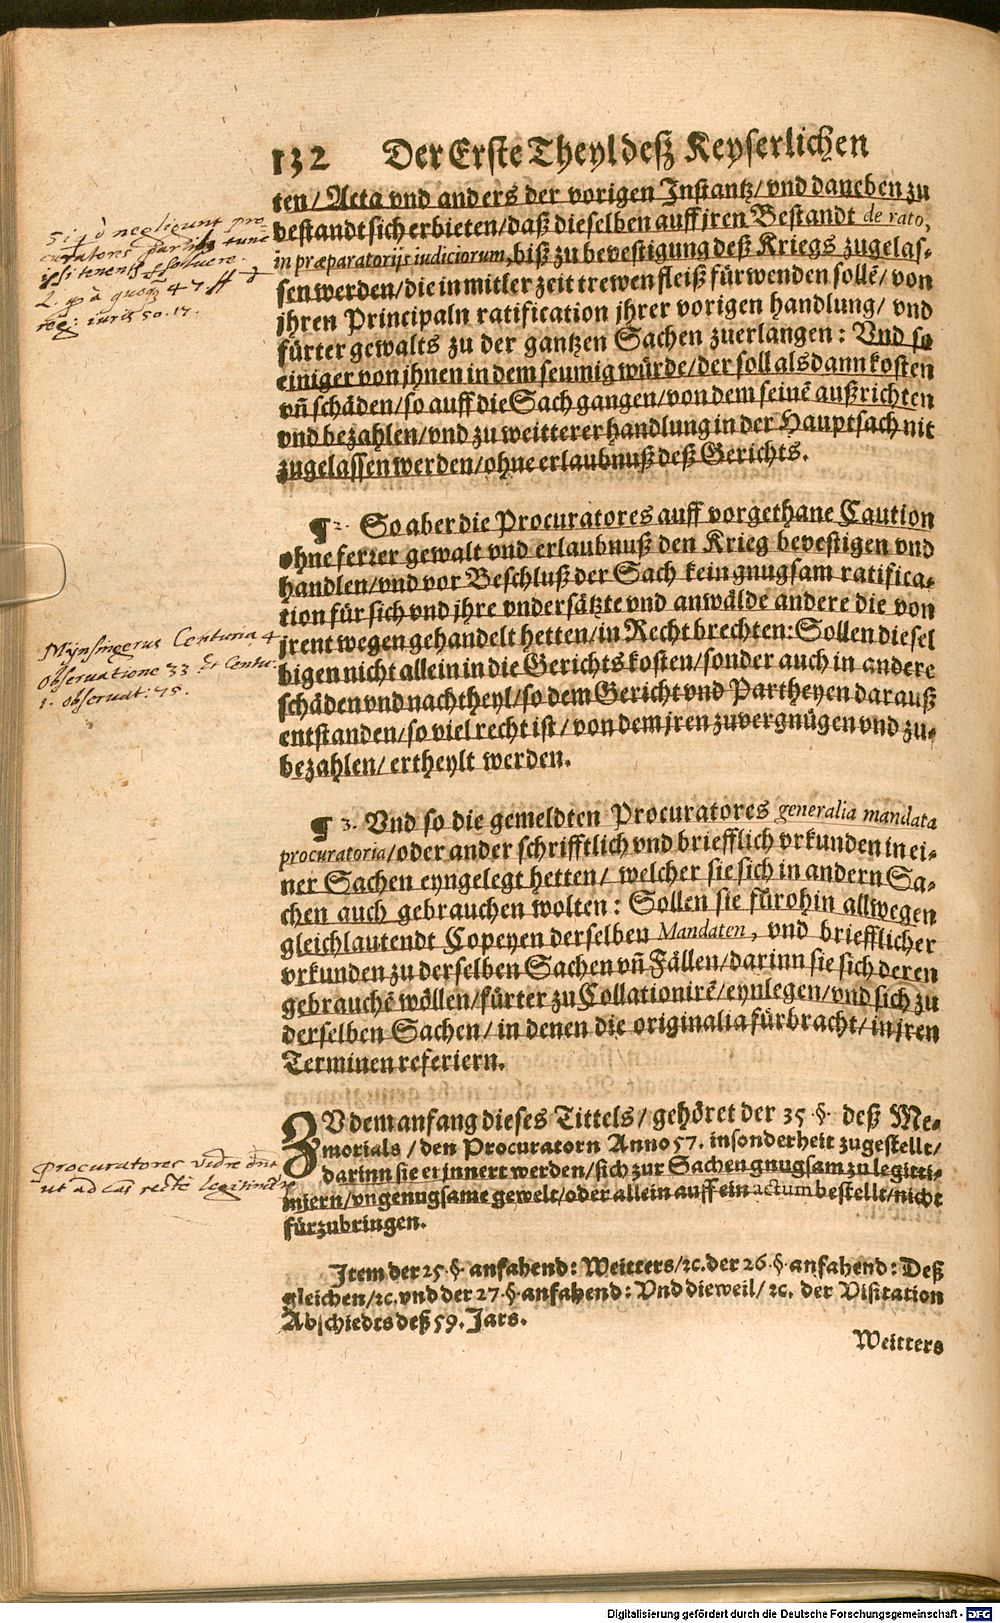 132 Der Erste Theyl deß Keyserlichen
ten/ Acta vnd anders der vorigen Instantz/ vnd daneben zu
bestandt sich erbieten/ daß dieselben auff jren Bestandt de rato,
in præparatorijs iudiciorum, biß zu bevestigung deß Kriegs zugelas-
sen werden/ die in mitler zeit trewen fleiß fürwenden sollē/ von
jhren Principaln ratification jhrer vorigen handlung/ vnd
fürter gewalts zu der gantzen Sachen zuerlangen: Vnd so
einiger von jhnen in dem seumig würde/ der soll alsdann kosten
vñ schäden/ so auff die Sach gangen/ von dem seinē außrichten
vnd bezahlen/ vnd zu weitterer handlung in der Hauptsach nit
zugelassen werden/ ohne erlaubnuß deß Gerichts.
¶ 2. So aber die Procuratores auff vorgethane Caution
ohne ferrer gewalt vnd erlaubnuß den Krieg bevestigen vnd
handlen/ vnd vor Beschluß der Sach kein gnugsam ratifica-
tion für sich vnd jhre vndersätzte vnd anwälde andere die von
jrent wegen gehandelt hetten/ in Recht brechten: Sollen diesel
bigen nicht allein in die Gerichtskosten/ sonder auch in andere
schäden vnd nachtheyl/ so dem Gericht vnd Partheyen darauß
entstanden/ so viel recht ist/ von dem jren zuvergnügen vnd zu-
bezahlen/ ertheylt werden.
¶ 3. Vnd so die gemeldten Procuratores generalia mandata
procuratoria/ oder ander schrifftlich vnd briefflich vrkunden in ei-
ner Sachen eyngelegt hetten/ welcher sie sich in andern Sa-
chen auch gebrauchen wolten: Sollen sie fürohin allwegen
gleichlautendt Copeyen derselben Mandaten, vnd briefflicher
vrkunden zu derselben Sachen vñ Fällen/ darinn sie sich deren
gebrauchē wöllen/ fürter zu Collationirē/ eynlegen/ vnd sich zu
derselben Sachen/ in denen die originalia fürbracht/ in jren
Terminen referiern.
ZV dem anfang dieses Tittels/ gehöret der 35 §. deß Me-
morials/ den Procuratorn Anno 57. insonderheit zugestellt/
darinn sie erjnnert werden/ sich zur Sachen gnugsam zu legitti-
miern/ vngenugsame gewelt/ oder allein auff ein actum bestellt/ nicht
fürzubringen.
Jtem der 25 §. anfahend: Weitters/ ꝛc. der 26 §. anfahend: Deß
gleichen/ ꝛc. vnd der 27 §. anfahend: Vnd dieweil/ ꝛc. der Visitation
Abschiedts deß 59. Jars.
Weitters
negligunt pro
curatores
47 ff
reg: iuris 50. 17.
Mijnsingerus Centuria 4
observatione 33 Et Centu:
1. observat: 75.
Procuratores
ut ad causas recte